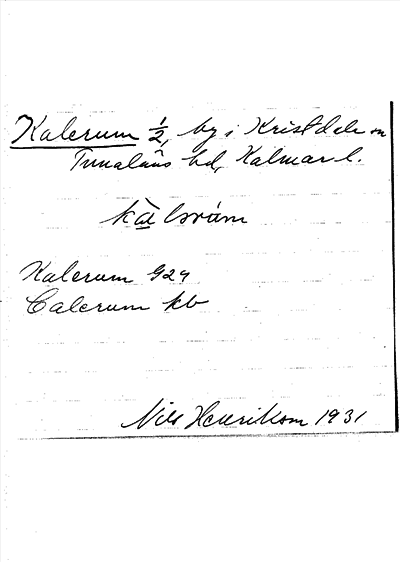 Kalerum ½, by i Kristdala sn
Tunaläns hd, Kalmar l.
Kalerum G24
Calerum kb
Nils Henrikson 1931